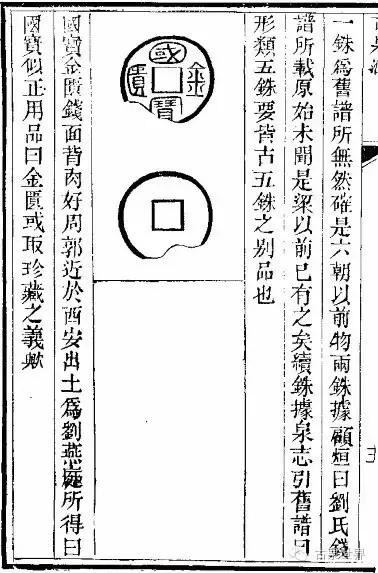 一銖爲舊譜所無然確是六朝以前物兩銖據顧烜曰劉氏錢
譜所載原始未聞是梁以前已有之矣續銖據泉志引舊譜曰
形類五銖要皆古五銖之别品也
國寶金匱
國寶金匱錢面背肉好周郭近於西安出土爲劉燕庭所得曰
國寶似正用品曰金匱或取珍藏之義歟